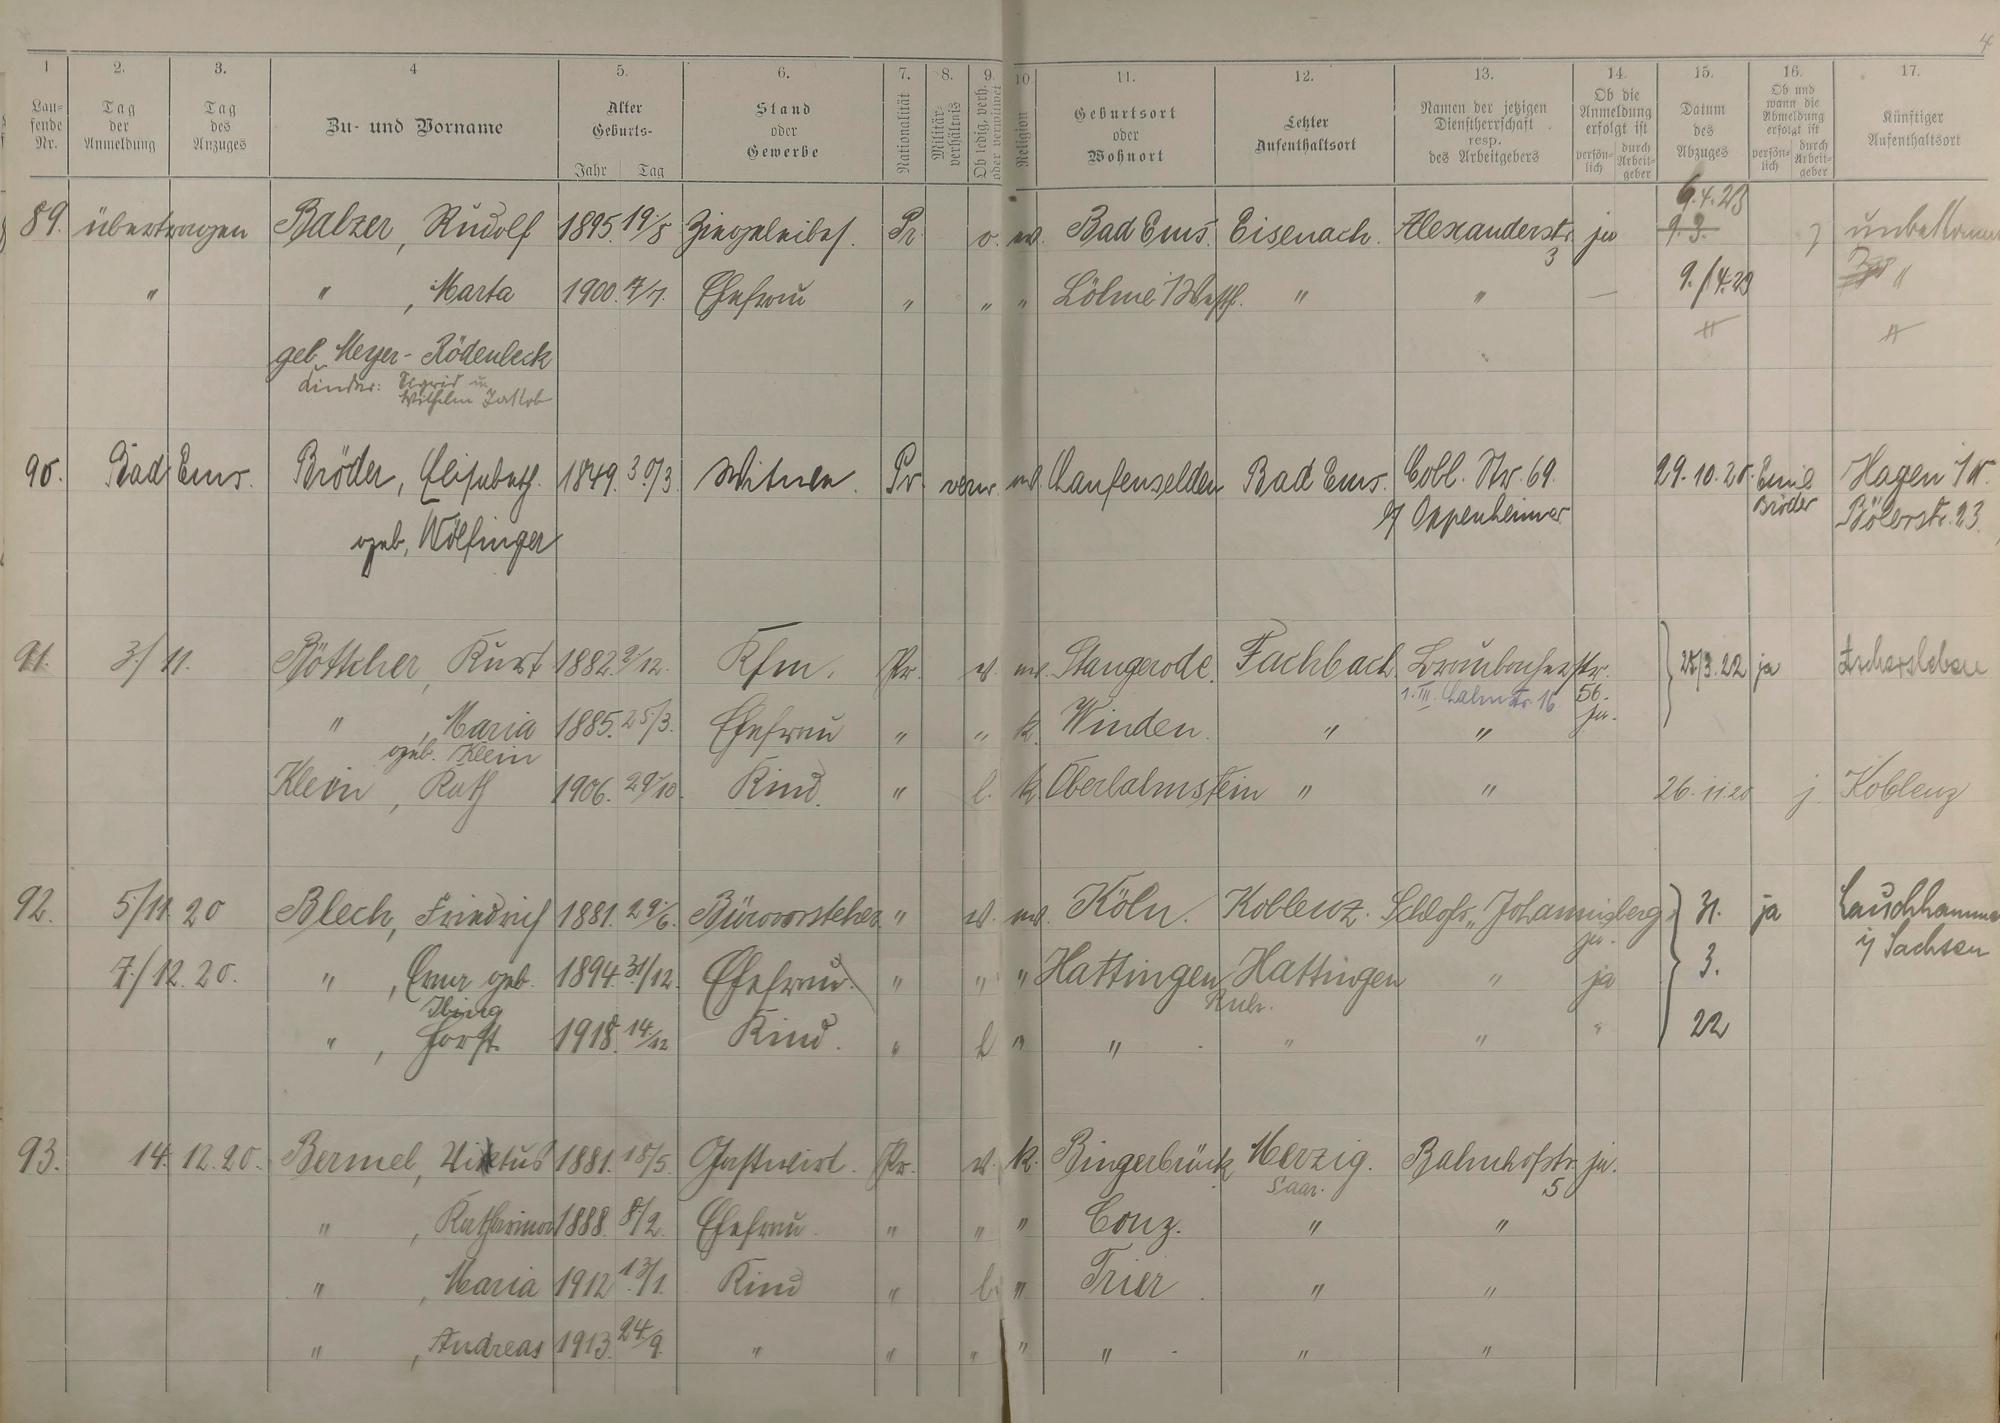 4
1 2. 3. 4 5. 6. 7. 8. 9. 10 11. 12. 13. 14. 15. 16. 17.
Lau-
fende
Nr.
Tag
der
Anmeldung
Tag
des
Anzuges
Zu- und Vorname
Alter
Geburts-
Jahr Tag
Stand
oder
Gewerbe
Nationalität
Militär-
verhältnis
Ob ledig, verh.
oder verwitwet
Religion
Geburtsort
oder
Wohnort
Letzter
Aufenthaltsort
Namen der jetzigen
Dienstherrschaft
resp.
des Arbeitgebers
Ob die
Anmeldung
erfolgt ist
persön-
lich
durch
Arbeit-
geber
Datum
des
Abzuges
Ob und
wann die
Abmeldung
erfolgt ist
persön-
lich
durch
Arbeit-
geber
Künftiger
Aufenthaltsort
6.4.23
89. übertragen Balzer, Rudolf 1895. 19/8 Pr. v. ev. Bad Ems. Eisenach. Alexanderstr. ja 9.3. unbekannt
3
" " , Marta 1900. Ehefrau " " " Löhne i/Westf. " " — 9./4.23 "
geb. Meyer-Rödenbeck
Kinder: Sigrid u.
Wilhelm Jakob
90. Bad Ems. Bröder, Elisabeth. 1849. 30/3. Witwe. Pr. verw. ev. Laufenselden Bad Ems. Cobl. Str. 69. 29.10.20. Emil Hagen i/W.
b/ Oppenheimer Bröder Bölerstr. 23.
geb. Wölfinger
91. 3./11. Böttcher, Kurt 1882. 9/12. Kfm. Pr. v. ev. Stangerode. Fachbach. Braubacherstr. 25/3.22 ja
1. III. Lahnstr. 16 56.
" , Maria 1885. 25/3. Ehefrau " " k. Winden. " " ja.
geb. Klein
Klein, Ruth 1906. 29/10. Kind. " l. k. Oberlahnstein " " 26.11.20 j. Koblenz
92. 5/11.20 Blech, Friedrich 1881. 29/6. Bürovorsteher " v. ev. Köln. Koblenz. Schloß „Johannisberg" 31. ja Lauchhammer
ja. i/ Sachsen
7./12.20. " , Erna geb. 1894. 31/12. Ehefrau. " " " Hattingen Hattingen " ja 3.
Ibing Ruhr.
" , Horst. 1918. 14/12 Kind. " l " " " " " 22
93. 14.12.20. Bermel, 1881. 18/5. Gastwirt. Pr. v. k. Bingerbrück Merzig. Bahnhofstr. ja.
Saar. 5
" , Katharina 1888. 8/2. Ehefrau. " " " Conz. " "
" , Maria 1912 13/1. Kind " l. " Trier " "
" , Andreas 1913. 24/9. " " " " " " "